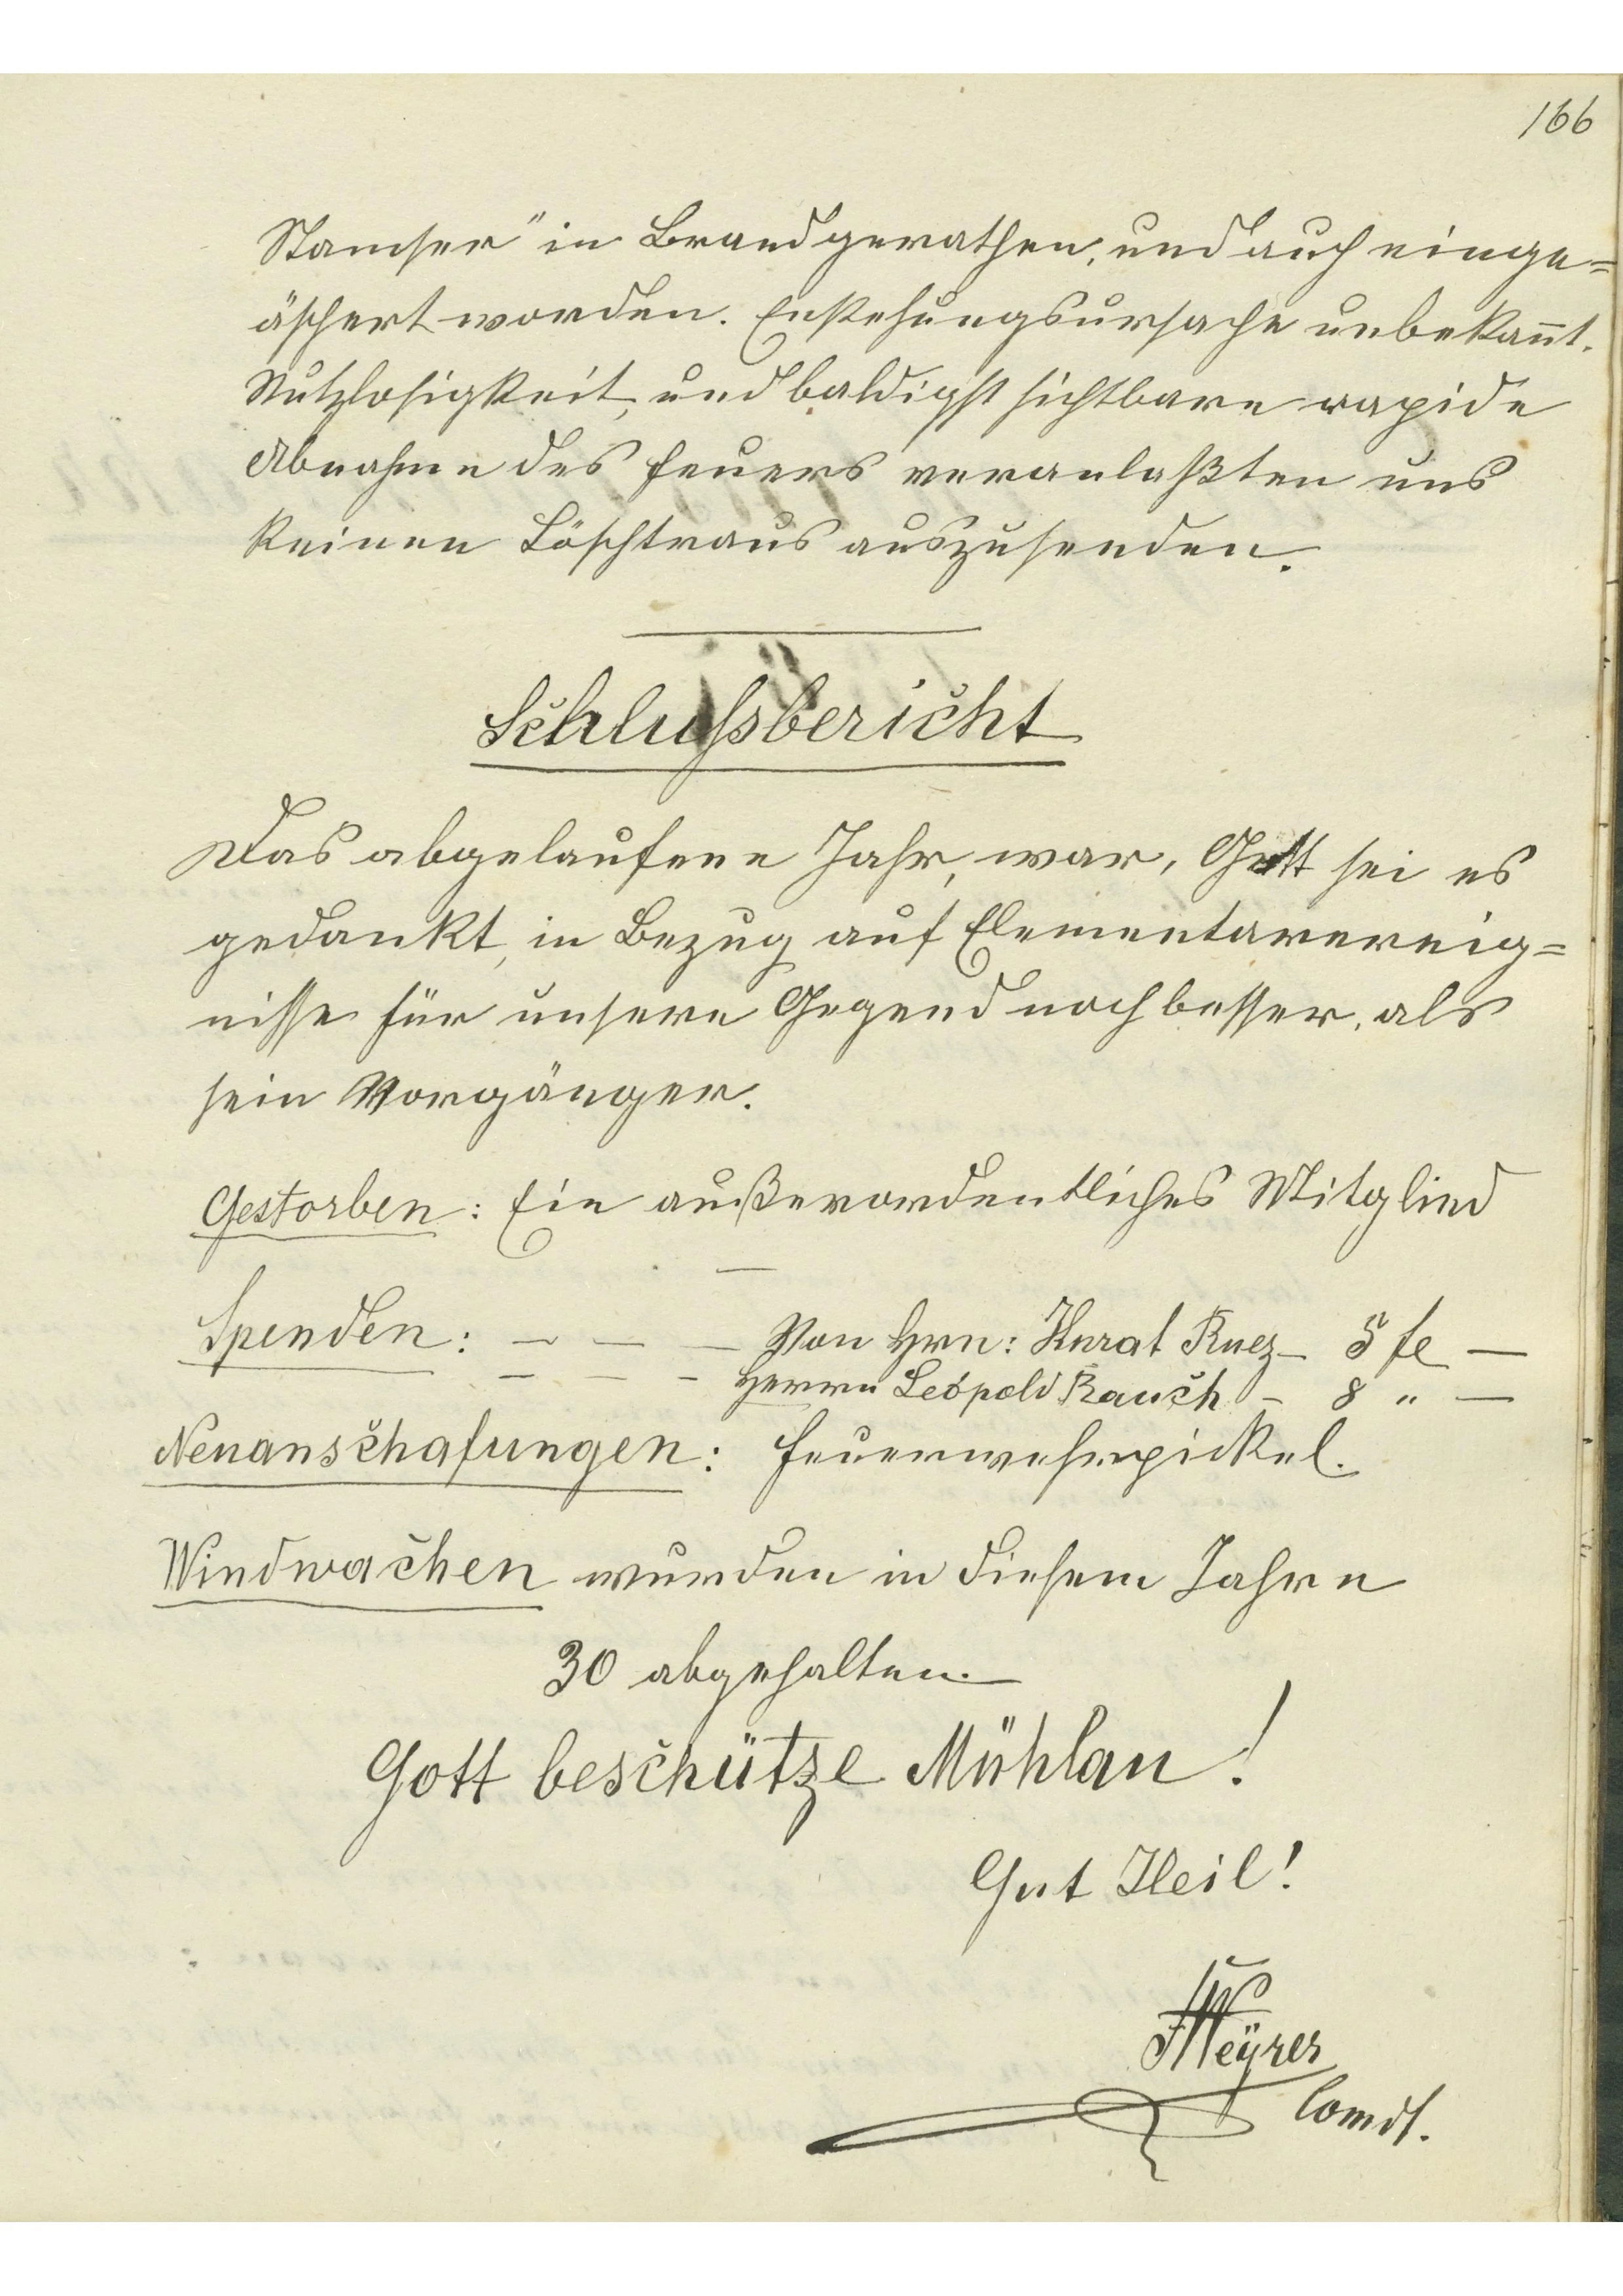 166
Stamser" in Brand gerathen, und auch einge=
äschert worden. Enstehungsursache unbekannt.
Nutzlosigkeit, und baldigst sichtbare rapide
Abnahme des Feuers veranlaßten uns
keinen Löschtraus auszusenden.
Schlußbericht
Das abgelaufene Jahr, war, Gott sei es
gedankt, in Bezug auf Elementarereig=
nisse für unsere Gegend noch besser, als
sein Vorgänger.
Gestorben: Ein außerordentliches Mitglied
Spenden: – – – Von Hrn: Kurat Ruez – 5 fl –
– – – Herrn Leopold Rauch – 8 " –
Neuanschafungen: Feuerwehrpickel.
Windwachen wurden in diesem Jahre
30 abgehalten.
Gott beschütze Mühlau!
Gut Heil!
Weÿrer
Comdt.